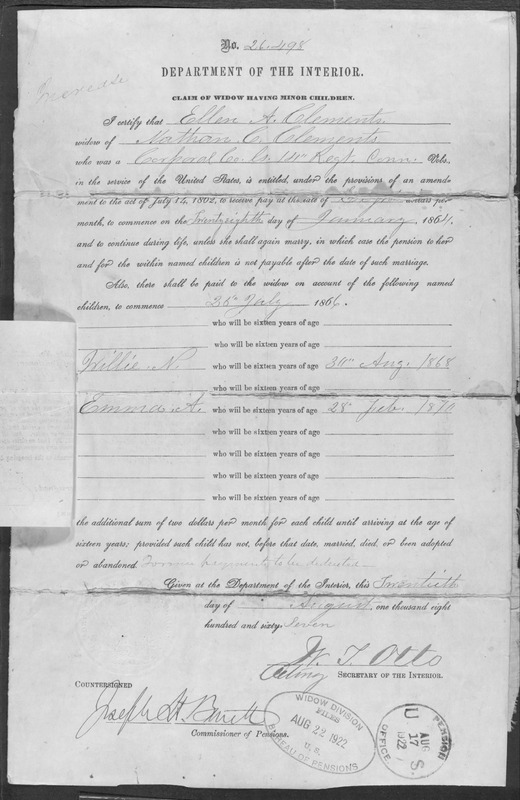 No. 26,498
DEPARTMENT OF THE INTERIOR.
Increase
CLAIM OF WIDOW HAVING MINOR CHILDREN.
I certify that Ellen A. Clements
widow of Nathan C. Clements
who was a Corporal Co. 14th Regt. Conn. Vols.,
in the service of the United States, is entitled, under the provisions of an amend-
ment to the act of July 14, 1862, to receive pay at the rate of dollars per
month, to commence on the Twenty eighth day of January, 1864,
and to continue during life, unless she shall again marry, in which case the pension to her
and for the within named children is not payable after the date of such marriage.
Also, there shall be paid to the widow on account of the following named
children, to commence 25th July 1866:
who will be sixteen years of age
who will be sixteen years of age
Willie N. who will be sixteen years of age 30th Aug. 1868
who will be sixteen years of age
Emma A. who will be sixteen years of age 28 Feb. 1870
who will be sixteen years of age
who will be sixteen years of age
who will be sixteen years of age
who will be sixteen years of age
the additional sum of two dollars per month for each child until arriving at the age of
sixteen years; provided such child has not, before that date, married, died, or been adopted
or abandoned. Former payments to be deducted.
Given at the Department of the Interior, this Twentieth
day of August, one thousand eight
hundred and sixty-seven
W. T. Otto
Acting SECRETARY OF THE INTERIOR.
COUNTERSIGNED
Joseph H. Barrett
Commissioner of Pensions.
WIDOW DIVISION
FILED
AUG 22 1922
U. S.
BUREAU OF PENSIONS
U. S. PENSION OFFICE
AUG
17
1922